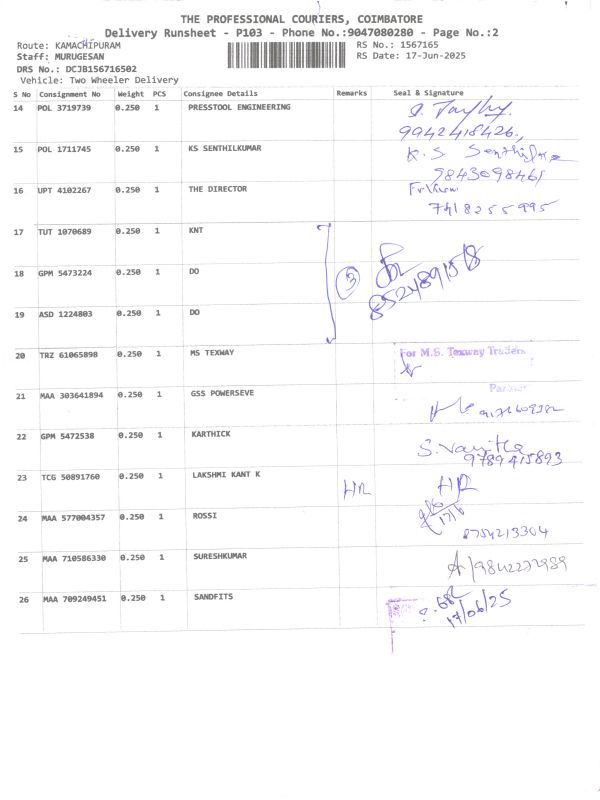 THE PROFESSIONAL COURIERS, COIMBATORE
Delivery Runsheet - P103 - Phone No.:9047080280 - Page No.:2
Route: KAMACHIPURAM RS No.: 1567165
Staff: MURUGESAN RS Date: 17-Jun-2025
DRS No.: DCJB156716502
Vehicle: Two Wheeler Delivery
S No Consignment No Weight PCS Consignee Details Remarks Seal & Signature
14 POL 3719739 0.250 1 PRESSTOOL ENGINEERING
9942418426
15 POL 1711745 0.250 1 KS SENTHILKUMAR K. S. Senthilkumar
9843098461
16 UPT 4102267 0.250 1 THE DIRECTOR
7418255995
17 TUT 1070689 0.250 1 KNT
18 GPM 5473224 0.250 1 DO 3
19 ASD 1224803 0.250 1 DO
20 TRZ 61065898 0.250 1 MS TEXWAY For M.S. Texway Traders
Partner
21 MAA 303641894 0.250 1 GSS POWERSEVE
22 GPM 5472538 0.250 1 KARTHICK S. Vanitha
9789415893
23 TCG 50891760 0.250 1 LAKSHMI KANT K
24 MAA 577004357 0.250 1 ROSSI 17/6
8754213304
25 MAA 710586330 0.250 1 SURESHKUMAR 9842272989
26 MAA 709249451 0.250 1 SANDFITS
17/06/25